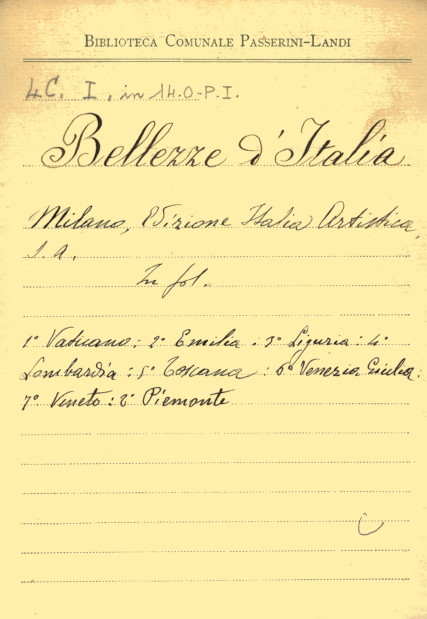 BIBLIOTECA COMUNALE PASSERINI-LANDI
4C. I, in 14.O-P.I.
Bellezze d'Italia
Milano, Edizione Italia Artistica,
s.a.
In fol.
1° Vaticano: 2° Emilia: 3° Liguria: 4°
Lombardia: 5° Toscana: 6° Venezia Giulia:
7° Veneto: 8° Piemonte